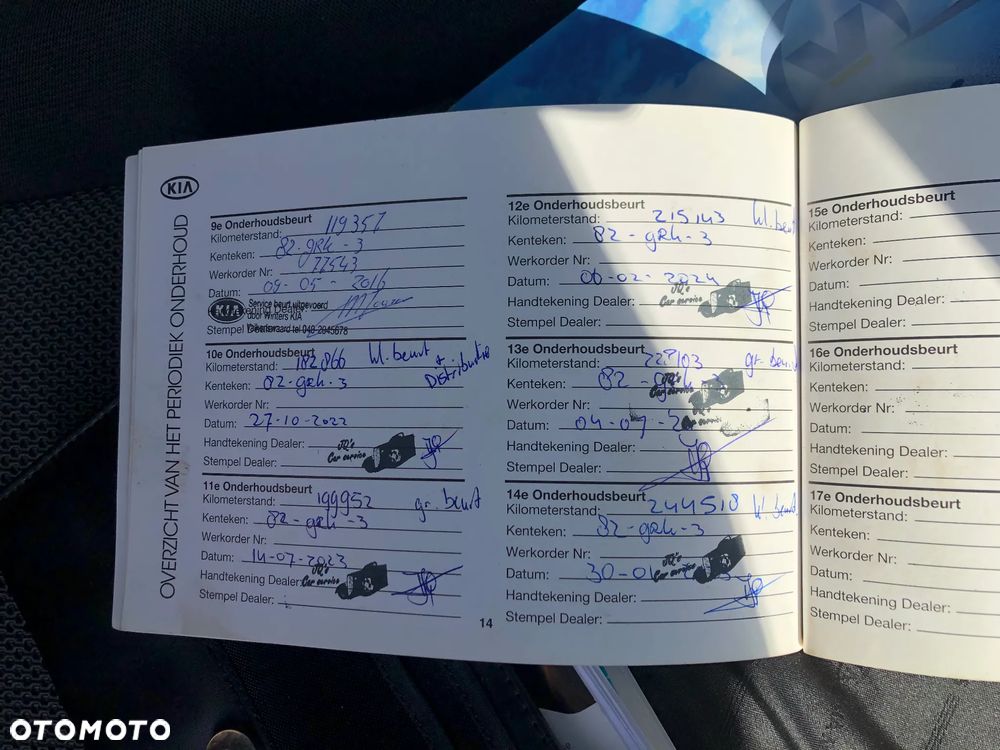 KIA
OVERZICHT VAN HET PERIODIEK ONDERHOUD
9e Onderhoudsbeurt
Kilometerstand: 119357
Kenteken: 82-gRh-3
Werkorder Nr: 77543
Datum: 09-05-2016
KIA Service beurt uitgevoerd
door Winters KIA
Stempel Dealer:
Valkenswaard tel 040-2045678
10e Onderhoudsbeurt
Kilometerstand: 182866 kl. beurt + Distributie
Kenteken: 82-gRh-3
Werkorder Nr:
Datum: 27-10-2022
Handtekening Dealer: JQ's Car service
Stempel Dealer:
11e Onderhoudsbeurt
Kilometerstand: 199952 gr. beurt
Kenteken: 82-gRh-3
Werkorder Nr:
Datum: 14-07-2023
Handtekening Dealer: JQ's Car service
Stempel Dealer:
12e Onderhoudsbeurt
Kilometerstand: 215143 kl. beurt
Kenteken: 82-gRh-3
Werkorder Nr:
Datum: 06-02-2024
Handtekening Dealer: JQ's Car service
Stempel Dealer:
13e Onderhoudsbeurt
Kilometerstand: gr. beurt
Kenteken: 82-gRh-3
JQ's Car service
Werkorder Nr: Car service
Datum:
Handtekening Dealer:
Stempel Dealer:
14e Onderhoudsbeurt
Kilometerstand: 244518 kl. beurt
Kenteken: 82-gRh-3
Werkorder Nr:
Datum: JQ's Car service
Handtekening Dealer:
Stempel Dealer:
14
15e Onderhoudsbeurt
Kilometerstand:
Kenteken:
Werkorder Nr:
Datum:
Handtekening Dealer:
Stempel Dealer:
16e Onderhoudsbeurt
Kilometerstand:
Kenteken:
Werkorder Nr:
Datum:
Handtekening Dealer:
Stempel Dealer:
17e Onderhoudsbeurt
Kilometerstand:
Kenteken:
Werkorder Nr:
Datum:
Handtekening Dealer:
Stempel Dealer:
OTOMOTO